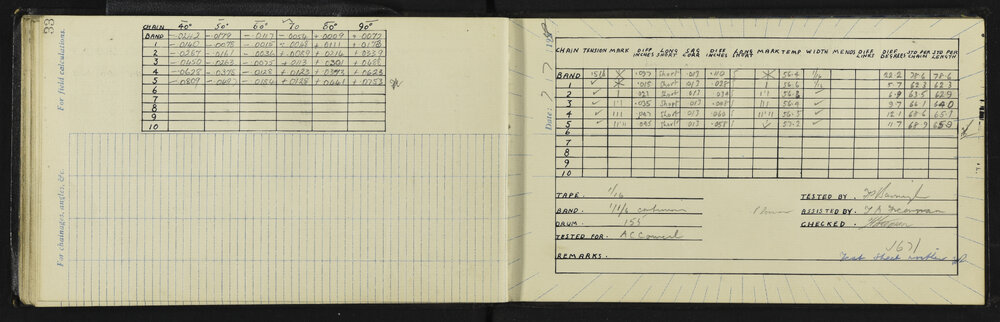 33
CHAIN 40° 50° 60° 70 80° 90°
BAND -0243 -0179 -0117 -0054 +0009 +0072
1 -0140 -0078 -0015 +0048 +0111 +0173
2 -0287 -0161 -0036 +0089 +0214 +0339
3 -0450 -0263 -0075 +0113 +0301 +0488
4 -0628 -0378 -0128 +0123 +0373 +0623
5 -0809 -0497 -0184 +0128 +0441 +0753
6
7
8
9
10
For field calculations.
For chainages, angles, &c.
Date:
CHAIN TENSION MARK DIFF INCHES LONG SHORT SAG CORR DIFF INCHES LONG SHORT MARK TEMP WIDTH MENDS DIFF LINKS DIFF DEGREES STD PER CHAIN STD PER LENGTH
BAND 15lb .097 Short .013 .110 56.4 1/16 22.2 78.6 78.6
1 .015 Short .013 .028 1 56.4 1/16 5.7 62.3 62.3
2 1 .021 Short .013 .034 1'1 56.8 6.9 63.5 62.9
3 1'1 .035 Short .013 .048 111 56.4 9.7 66.1 64.0
4 111 .047 Short .013 .060 11'11 56.5 12.1 68.6 65.1
5 11'11 .045 Short .013 .058 57.2 11.7 68.9 65.9
6
7
8
9
10
TAPE. 1/16
BAND. 1/1/6
DRUM. 155
TESTED FOR. A C Council
REMARKS.
TESTED BY
ASSISTED BY. T A Freeman
CHECKED.
1621
Test sheet written up